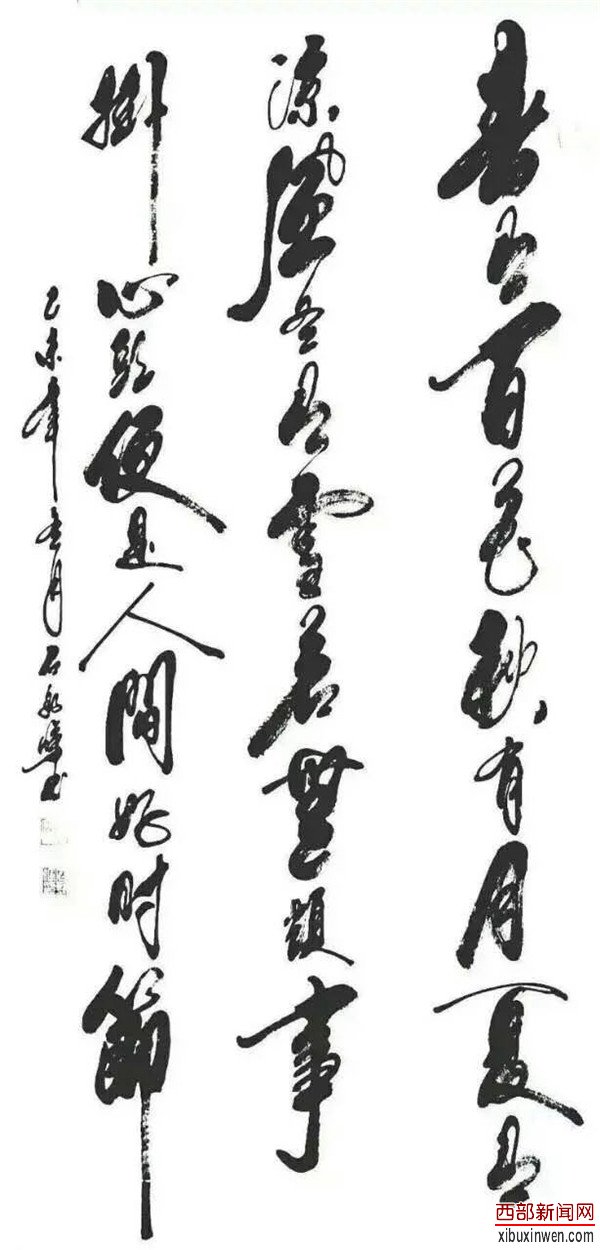 春有百花秋有月夏有
涼風冬有雪若無煩事
掛心頭便是人間好时節
乙未年月石书
西部新闻网
xibuxinwen.com